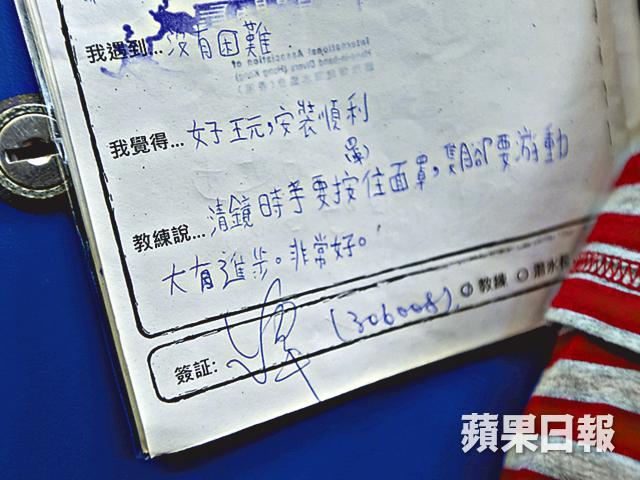 我遇到... 沒有困難
International Association of
Divers (Hong Kong)
我覺得... 好玩，安裝順利
教練說... 清鏡時手要按住面罩，雙腳要游動
大有進步。非常好。
簽証: (306008) 教練 潛水
蘋果日報